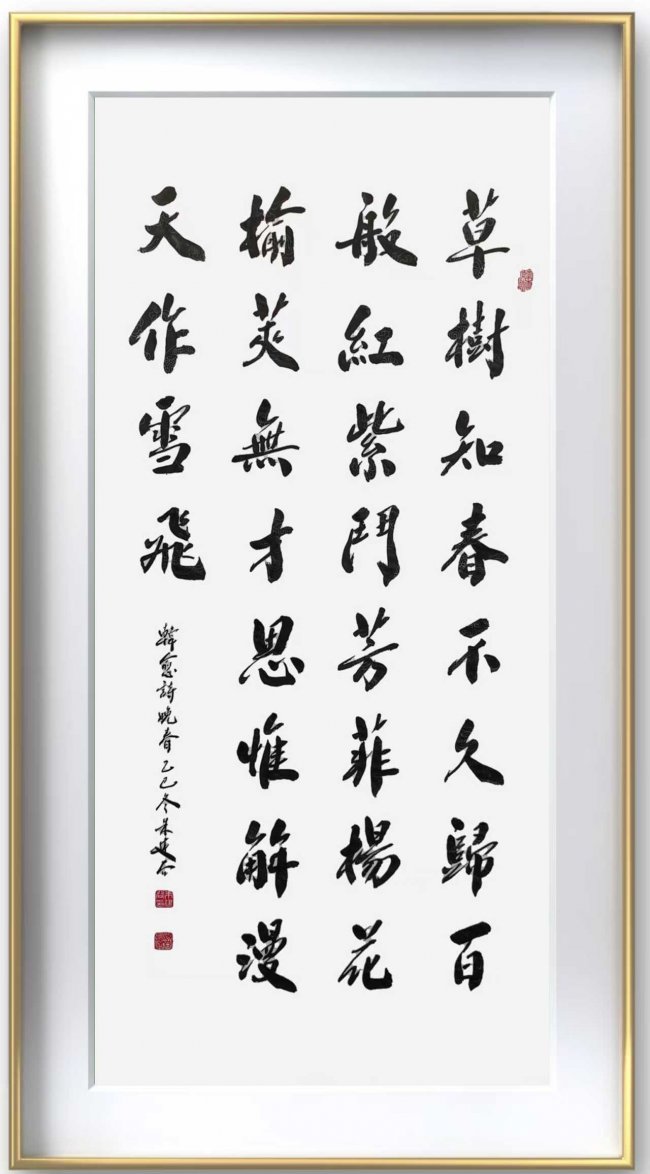 草樹知春不久歸百
般紅紫鬥芳菲楊花
榆莢無才思惟解漫
天作雪飛
韓愈詩晚春乙巳冬朱建